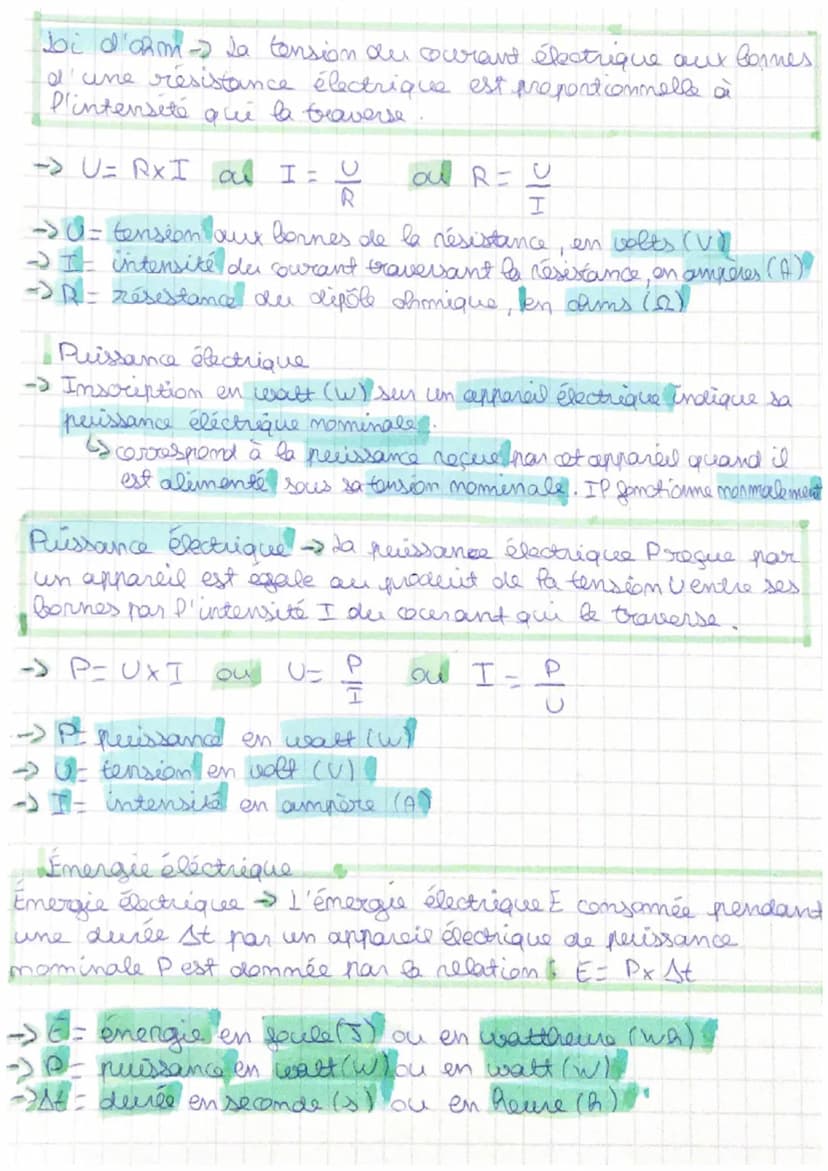 Loi d'ohm -> La tension du courant électrique aux bornes
d'une résistance électrique est proportionnelle à
l'intensité qui la traverse.
-> U = R×I ou I = U/R ou R = U/I
-> U = tension aux bornes de la résistance, en volts (V)
-> I = intensité du courant traversant la résistance, en ampères (A)
-> R = résistance du dipôle ohmique, en ohms (Ω)
Puissance électrique
-> Inscription en watt (W) sur un appareil électrique indique sa
puissance éléctrique nominale.
↳ correspond à la puissance reçue par cet appareil quand il
est alimenté sous sa tension nominale. Il fonctionne normalement
Puissance électrique -> La puissance électrique P reçue par
un appareil est égale au produit de la tension U entre ses
bornes par l'intensité I du courant qui le traverse.
-> P = U×I ou U = P/I ou I = P/U
-> P = puissance en watt (W)
-> U = tension en volt (V)
-> I = intensité en ampère (A)
Énergie éléctrique
Énergie électrique -> L'énergie électrique E consomée pendant
une durée Δt par un appareil électrique de puissance
nominale P est donnée par la relation : E = P× Δt
-> E = énergie en joule (J) ou en wattheure (Wh)
-> P = puissance en watt (W) ou en watt (W)
-> Δt = durée en seconde (s) ou en heure (h)